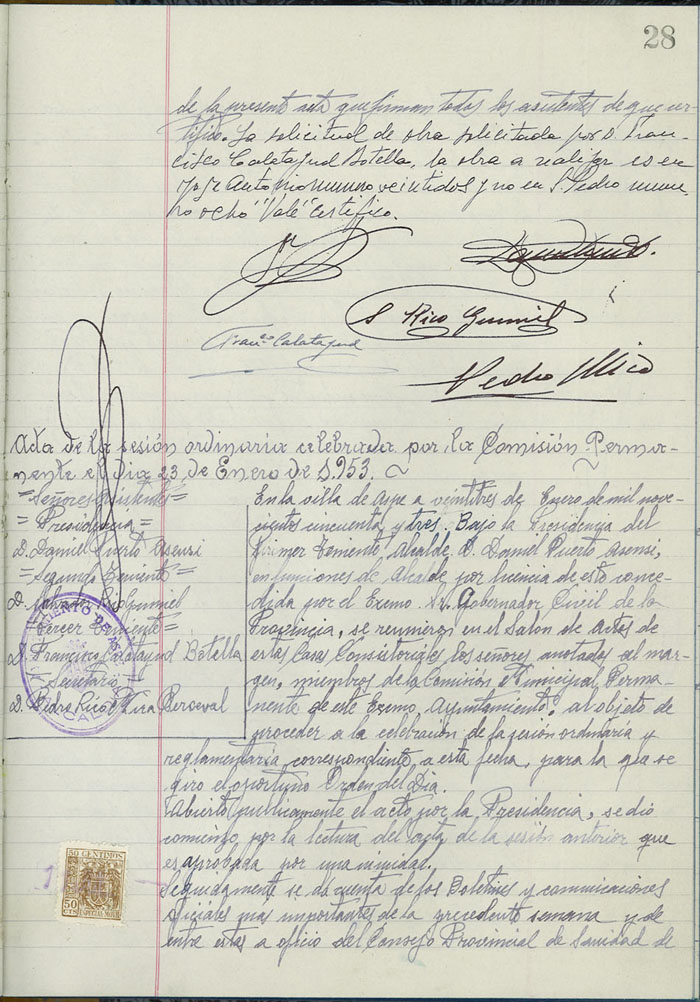 28
de la presente acta que firman todos los asistentes de que cer-
tifico. La solicitud de obra solicitada por D. Fran-
cisco Calatayud Botella, la obra a realizar es en
José Antonio numero veintidos y no en S. Pedro nume-
ro ocho "Vale" certifico.
S. Rico Gumiel
Franco Calatayud
Pedro Rico
Acta de la sesión ordinaria celebrada por la Comisión Perma-
nente el dia 23 de Enero de 1.953.
=Señores asistentes=
=Presidencia=
D. Daniel Puerto Asensi
=Segundo Teniente=
D. Salvador Rico Gumiel
=Tercer Teniente=
D. Francisco Calatayud Botella
=Secretario=
D. Pedro Rico Perceval
En la villa de Aspe a veintitres de Enero de mil nove-
cientos cincuenta y tres. Bajo la Presidencia del
Primer Teniente Alcalde D. Daniel Puerto Asensi,
en funciones de Alcalde por licencia de esto conce-
dida por el Excmo. Sr. Gobernador Civil de la
Provincia, se reunieron en el Salon de actos de
estas Casas Consistoriales los señores anotados al mar-
gen, miembros de la Comisión Municipal Perma-
nente de este Excmo. Ayuntamiento, al objeto de
proceder a la celebración de la sesión ordinaria y
reglamentaria correspondiente a esta fecha, para la que se
giro el oportuno Orden del Dia.
Abierto publicamente el acto por la Presidencia, se dió
comienzo por la lectura del acta de la sesión anterior que
es aprobada por unanimidad.
Seguidamente se da cuenta de los Boletines y comunicaciones
oficiales mas importantes de la precedente semana y de
entre estas a oficio del Consejo Provincial de Sanidad de
50 CENTIMOS
50
CTS
ESPECIAL MOVIL